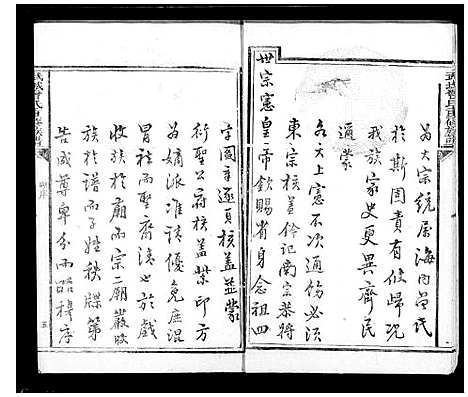 為大宗統屬海內曾氏
於斯固責有攸歸況
我族家史更異齊民
迺蒙
各大上憲不次通飭必須
東宗核蓋鈐記南宗恭將
世宗憲皇帝欽賜省身念祖四
字圖章逐頁核蓋並蒙
衍聖公府核蓋紫印方
為嫡派准該優免庶混
冒杜而聖裔清也於戲
收族於廟而宗二廟嚴昭
族於譜而子姓秩牒第
告成尊卑分而昭穆序
五